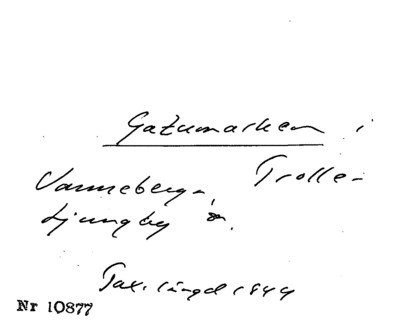 Gatumarken i
Vanneberga, Trolle-
Ljungby
Tax. längd 1844
Nr 10877